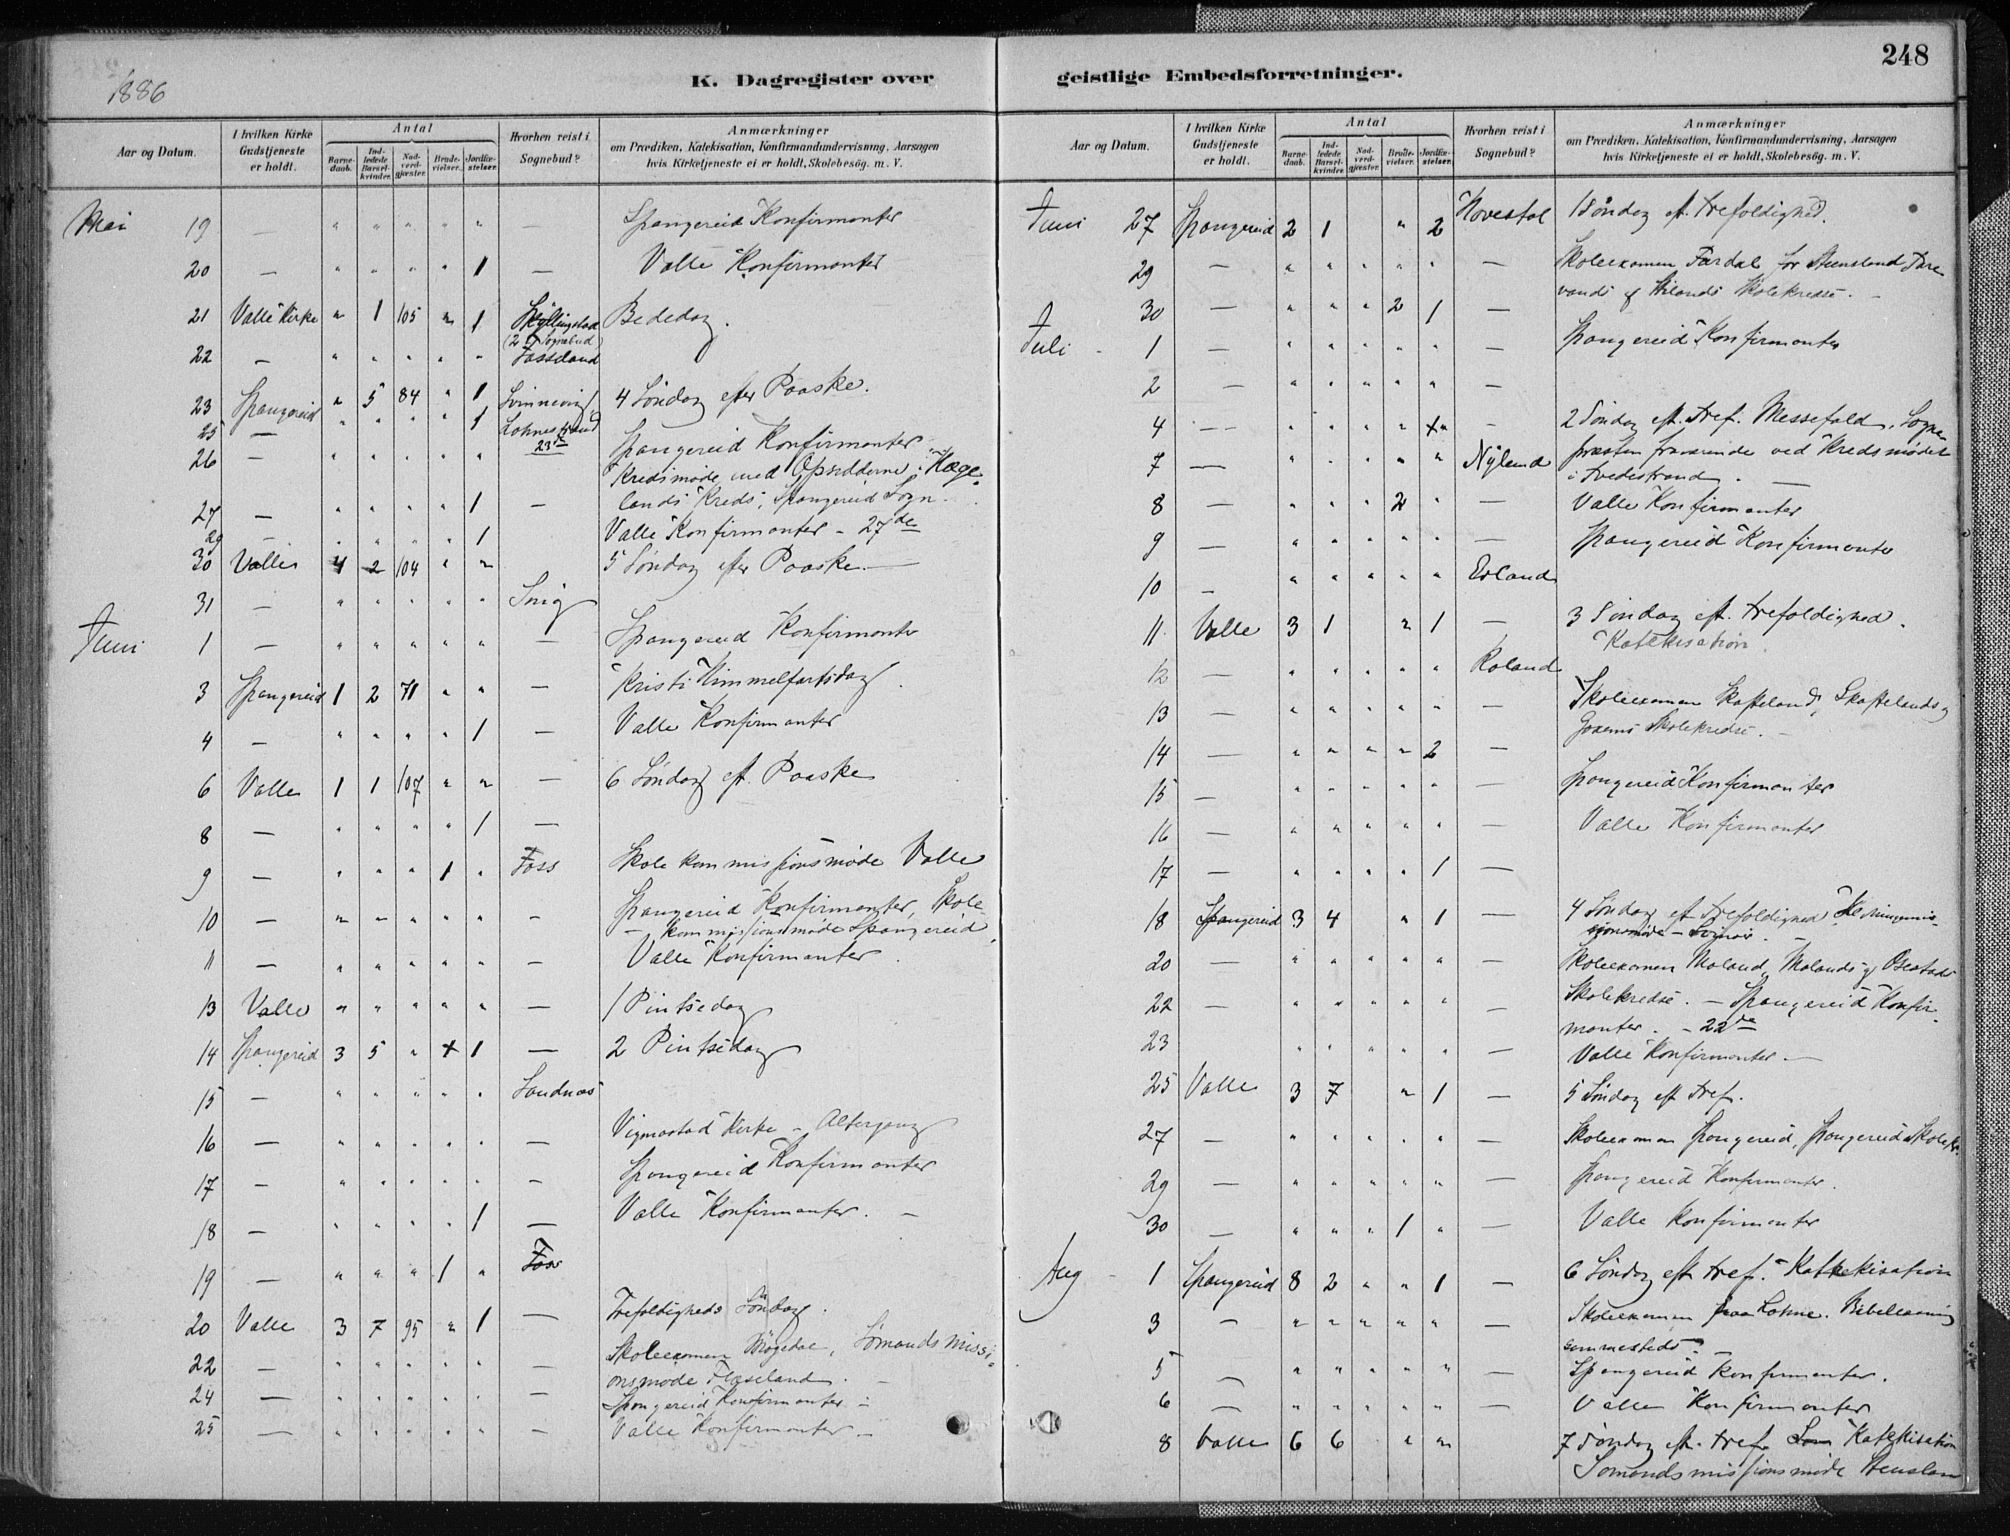 1886
K. Dagregister over
Aar og Datum.
I hvilken Kirke Gudstjeneste er holdt.
Antal
Barne-daab.
Ind-ledede Barsel-kvinder.
Nad-verd-gjæster.
Brude-vielser.
Jordfæ-stelser.
Hvorhen reist i Sognebud?
Anmærkninger
om Prædiken, Katekisation, Konfirmandundervisning, Aarsagen
hvis Kirketjeneste ei er holdt, Skolebesøg. m. V.
Mai 19 — " " " " " — Spangereid Konfirmanter
20 — " " " " 1 — Valle Konfirmanter
21 Valle Kirke " 1 105 " 1 Skjllingstad Bededag.
(2 Sognebud)
22 — " " " " " Fosseland
23 Spangereid " 5 84 " 1 Svinnevig 4 Søndag efter Paaske.
25 — " " " " 1 Lohnestrand
23de
26 — " " " " " Spangereid Konfirmanter
Kredsmøde med Opsidderne i Hæge-
lands Kreds, Spangereid Sogn.
27 — " " " " 1 —
29 — " " " " 1 Valle Konfirmanter - 27de
30 Valle 4 2 104 " " 5 Søndag efter Paaske. —
31 — " " " " " Snig
Juni 1 — " " " " " — Spangereid Konfirmanter
3 Spangereid 1 2 71 " " — Kristi Himmelfartsdag.
4 — " " " " 1 — Valle Konfirmanter
6 Valle 1 1 107 " " — 6 Søndag eft. Paaske
8 — " " " " 1 —
9 — " " " 1 " Foss Skolekommissjonsmøde Valle
10 — " " " " " - Spangereid Konfirmanter, Skole-
— kommissjonsmøde Spangereid.
11 — " " " " " — Valle Konfirmanter.
13 Valle " " " " " — 1 Pintsedag
14 Spangereid 3 5 " + 1 — 2 Pintsedag
15 — " " " " " Sandnæs
16 — " " " " " — Vigmostad Kirke - Altergang
17 — " " " " " - Spangereid Konfirmanter
18 — " " " " 1 — Valle Konfirmanter. —
19 — " " " 1 " Foss
20 Valle 3 7 95 " 1 — Trefoldigheds Søndag.
22 — " " " " " - Skoleexamen Møgedal, Sømandsmissi-
onsmøde Flaseland. -
24 — " " " " " — Spangereid Konfirmanter -
25 — " " " " " - Valle Konfirmanter -
248
geistlige Embedsforretninger.
Aar og Datum.
I hvilken Kirke Gudstjeneste er holdt.
Antal
Barne-daab.
Ind-ledede Barsel-kvinder.
Nad-verd-gjæster.
Brude-vielser.
Jordfæ-stelser.
Hvorhen reist i Sognebud?
Anmærkninger
om Prædiken, Katekisation, Konfirmandundervisning, Aarsagen
hvis Kirketjeneste ei er holdt, Skolebesøg. m. V.
Juni 27 Spangereid 2 1 " 2 Hovestol 1 Søndag eft. Trefoldighed.
29 — " " " " " — Skoleexamen Fardal for Stensland Fare
vands og Kilands Skolekredse. -
30 — " " " 2 1 —
Juli 1 — " " " " " — Spangereid Konfirmanter
2 — " " " " " —
4 — " " " " + - 2 Søndag eft. Tref. Messefald. Sogne-
præsten fraværende ved Kredsmødet
7 — " " " " " Nyland
i Tvedestrand. —
8 — " " " 2 " — Valle Konfirmanter
9 — " " " " " — Spangereid Konfirmanter
10 - " " " " " Eoland
11 Valle 3 1 " 1 — 3 Søndag eft. Trefoldighed.
Katekisation
12 — " " " " " Roland
13 — " " " " " - Skoleexamen Skofteland, Skoftelands og
Goxems Skolekredse. -
14 — " " " " 2 —
15 — " " " " " — Spangereid Konfirmanter
16 — " " " " " — Valle Konfirmanter
17 — " " " " 1 —
18 Spangereid 3 4 " 1 — 4 Søndag eft Trefoldighed
20 — " " " " " — Skoleexamen Moland, Molands og Osestads
22 — " " " " " — Skolekredse. - Spangereid Konfir-
manter. - 22de
23 " " " " " — Valle Konfirmanter. —
25 Valle 3 7 " 1 — 5 Søndag eft Tref.
27 — " " " " " — Skoleexamen Spangereid, Spangereid Skolekr.
29 — " " " " " — Spangereid Konfirmanter.
30 — " " " 1 " — Valle Konfirmanter
Aug 1 Spangereid 8 2 " " 1 — 6 Søndag eft Tref. Katekisation
3 — " " " " " — Skoleexamen paa Lohne. Bibellæsning
sammesteds -
5 — " " " " " Spangereid Konfirmanter.
6 — " " " " " — Valle Konfirmanter
8 Valle 6 6 " " 7 Søndag eft. Tref. Katekisation
Sømandsmissjonsmøde Stenslan